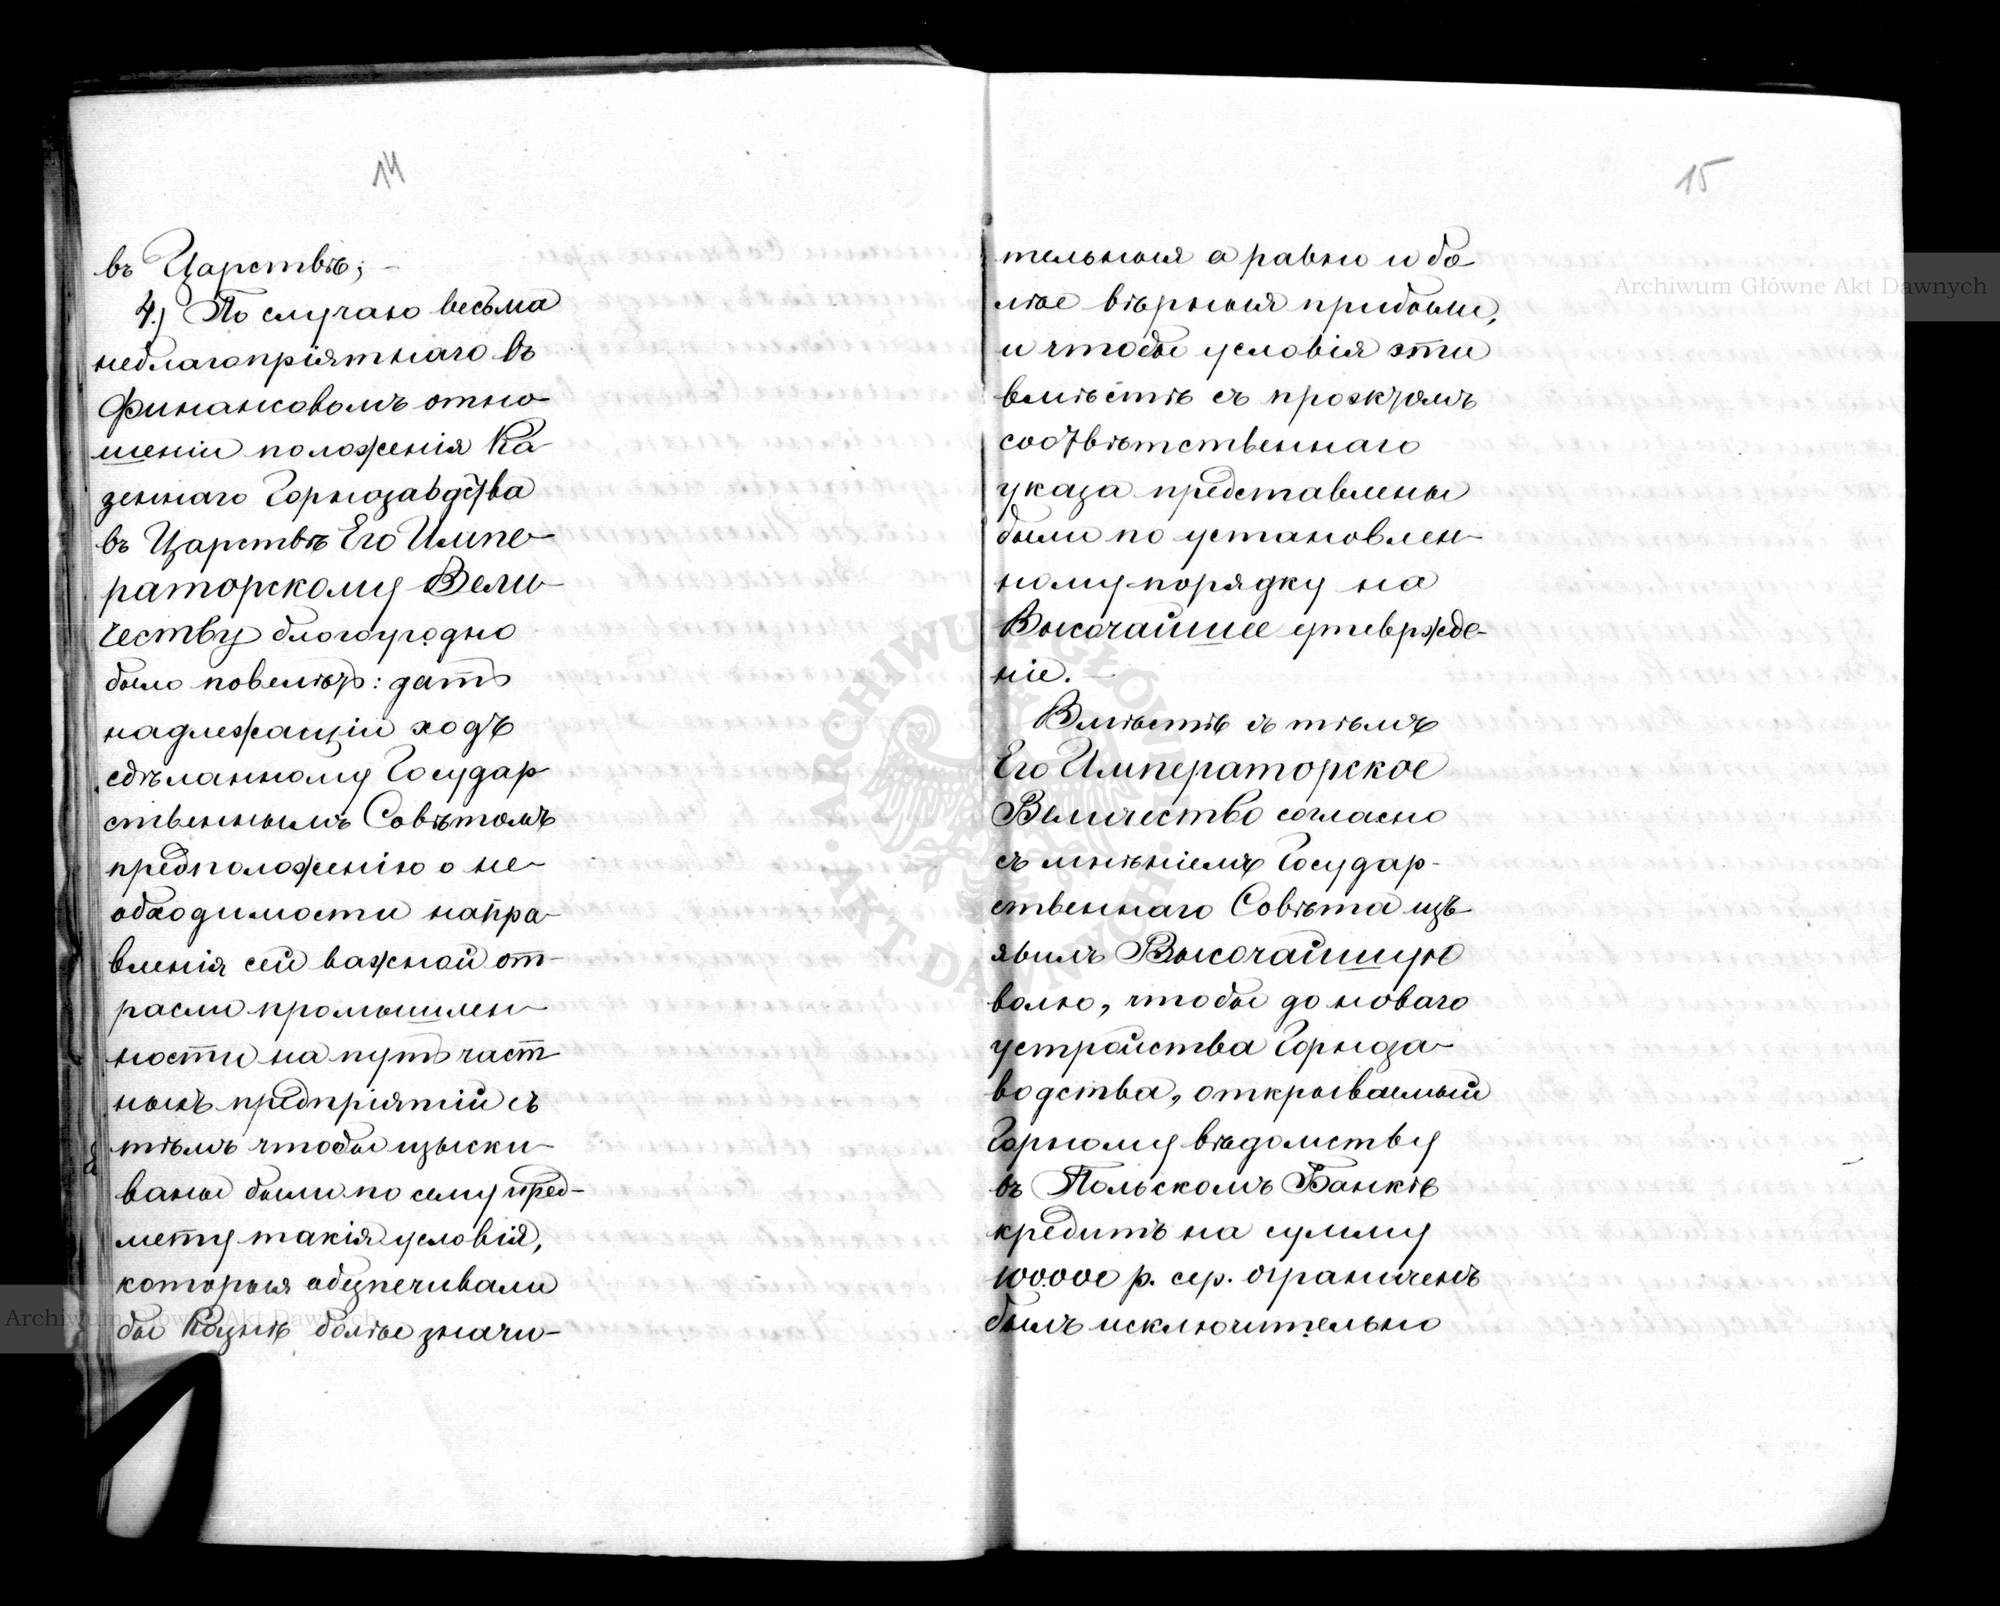 14
въ Царствѣ; –
4.) По случаю весьма
неблагопріятнаго въ
финансовомъ отно-
шеніи положенія Ка-
зеннаго Горнозаводства
въ Царствѣ Его Импе-
раторскому Вели-
честву благоугодно
было повелѣть: дать
надлежащій ходъ
сдѣланному Государ-
ственнымъ Совѣтомъ
предположенію о не-
обходимости напра-
вленія сей важной от-
расли промышлен-
ности на путь част-
ныхъ предпріятій съ
тѣмъ чтобы изыски-
ваны были по сему пред-
мету такія условія,
которыя обезпечивали
бы Казнѣ болѣе значи-
15
тельныя а равно и бо-
лѣе вѣрныя прибыли,
и чтобы условія эти
вмѣстѣ съ проэктомъ
соотвѣтственнаго
указа представлены
были по установлен-
ному порядку на
Высочайшее утвержде-
ніе. –
Вмѣстѣ съ тѣмъ
Его Императорское
Величество согласно
съ мнѣніемъ Государ-
ственнаго Совѣта изъ-
явилъ Высочайшую
волю, чтобы до новаго
устройства Горноза-
водства, открываемый
Горному вѣдомству
въ Польскомъ Банкѣ
кредитъ на сумму
100.000 р. сер. ограниченъ
былъ исключительно
Archiwum Główne Akt Dawnych
Archiwum Główne Akt Dawnych
ARCHIWUM GŁÓWNE AKT DAWNYCH